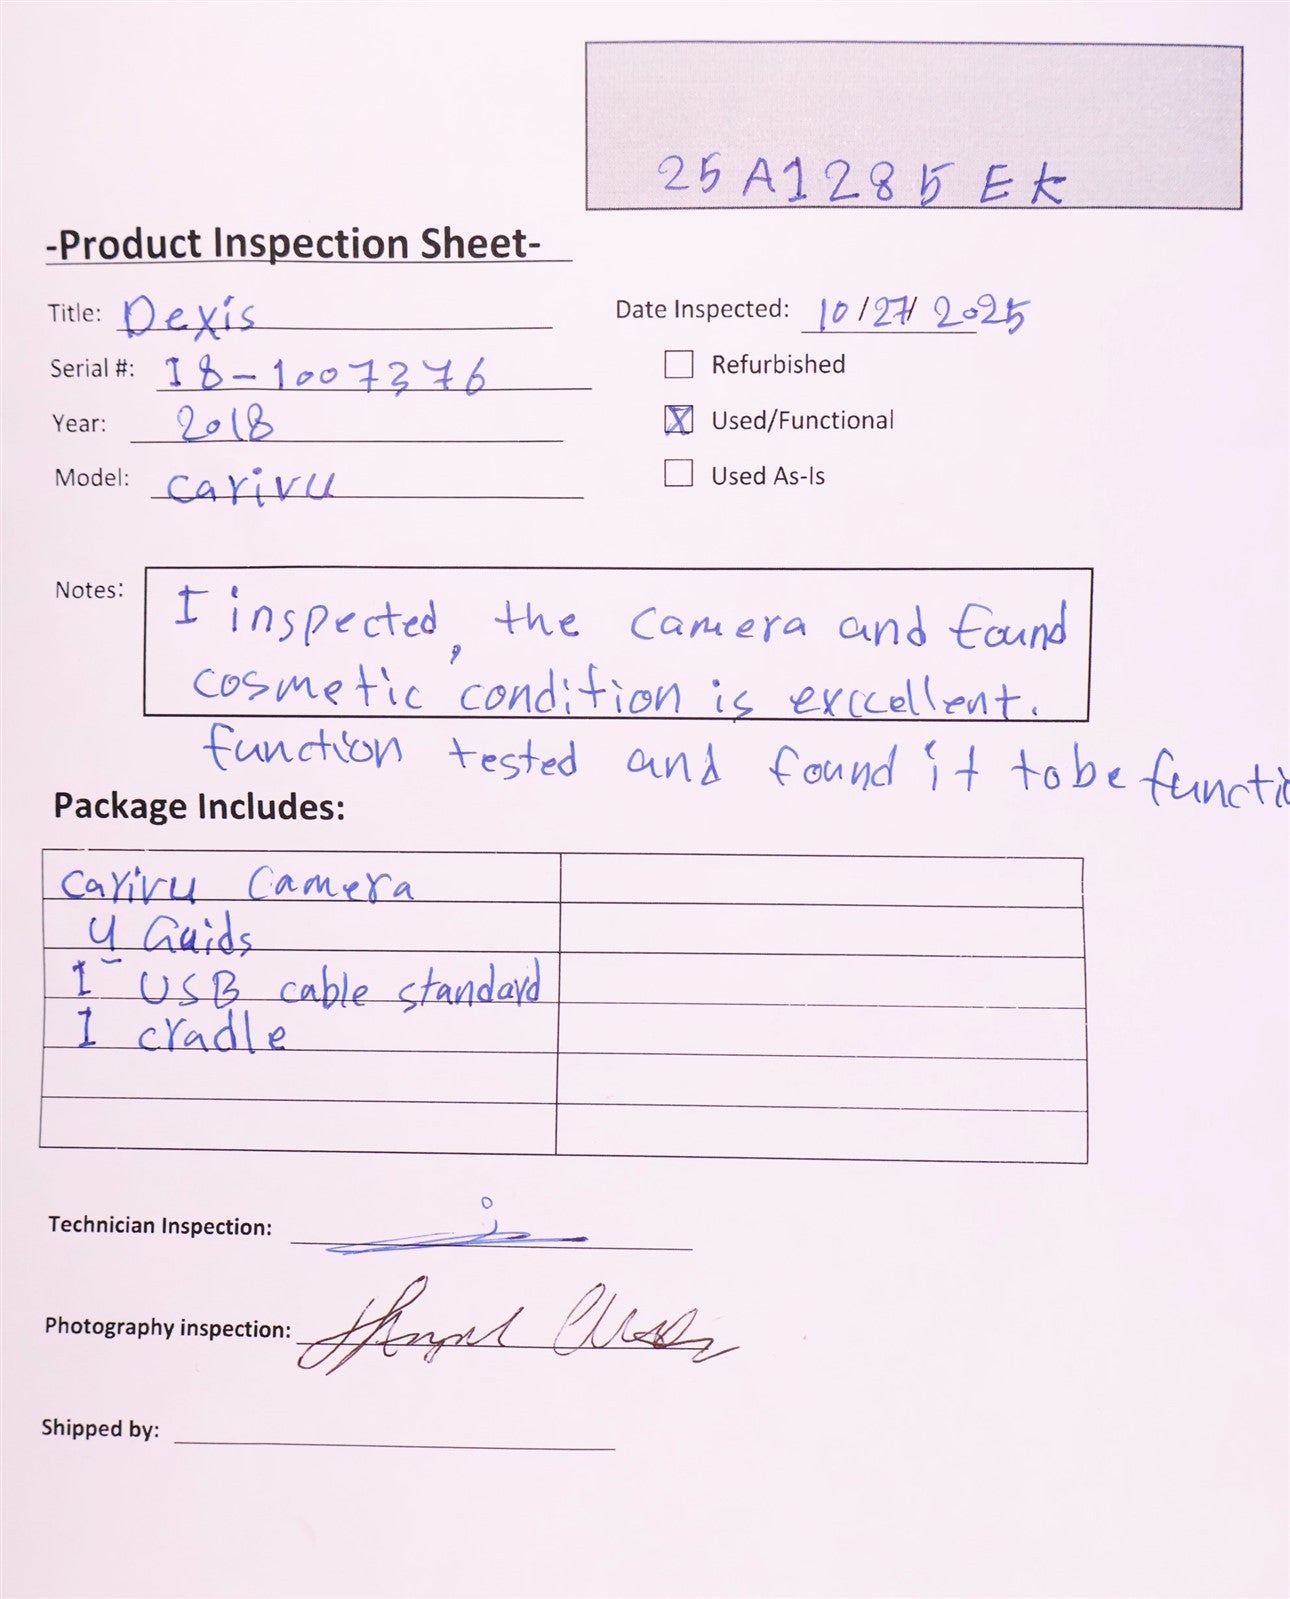 25A1285EK
-Product Inspection Sheet-
Title: Dexis
Date Inspected: 10/27/2025
Serial #: I8-1007376
Refurbished
Year: 2018
Used/Functional
Model: carivu
Used As-Is
Notes: I inspected, the camera and found
cosmetic condition is exccellent.
function tested and found it to be functio
Package Includes:
carivu Camera
4 Guids
1 USB cable standard
1 cradle
Technician Inspection:
Photography inspection:
Shipped by: